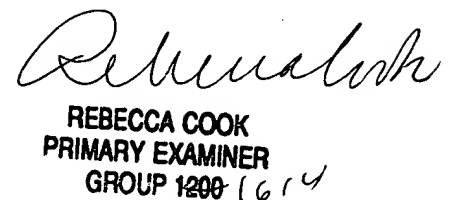 Rebecca Cook
REBECCA COOK
PRIMARY EXAMINER
GROUP 1200 1614